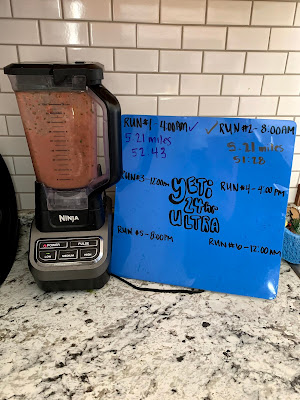 RUN#1 4:00PM ✓
5.21 miles
52:43
✓ RUN#2-8:00AM
5.21 miles
51:28
RUN#3-12:00am
YETi
24 HR
ULTRA
RUN#4-4:00 PM
RUN #5-8:00PM
RUN #6-12:00AM
NINJA
POWER
PULSE
LOW
MEDIUM
HIGH